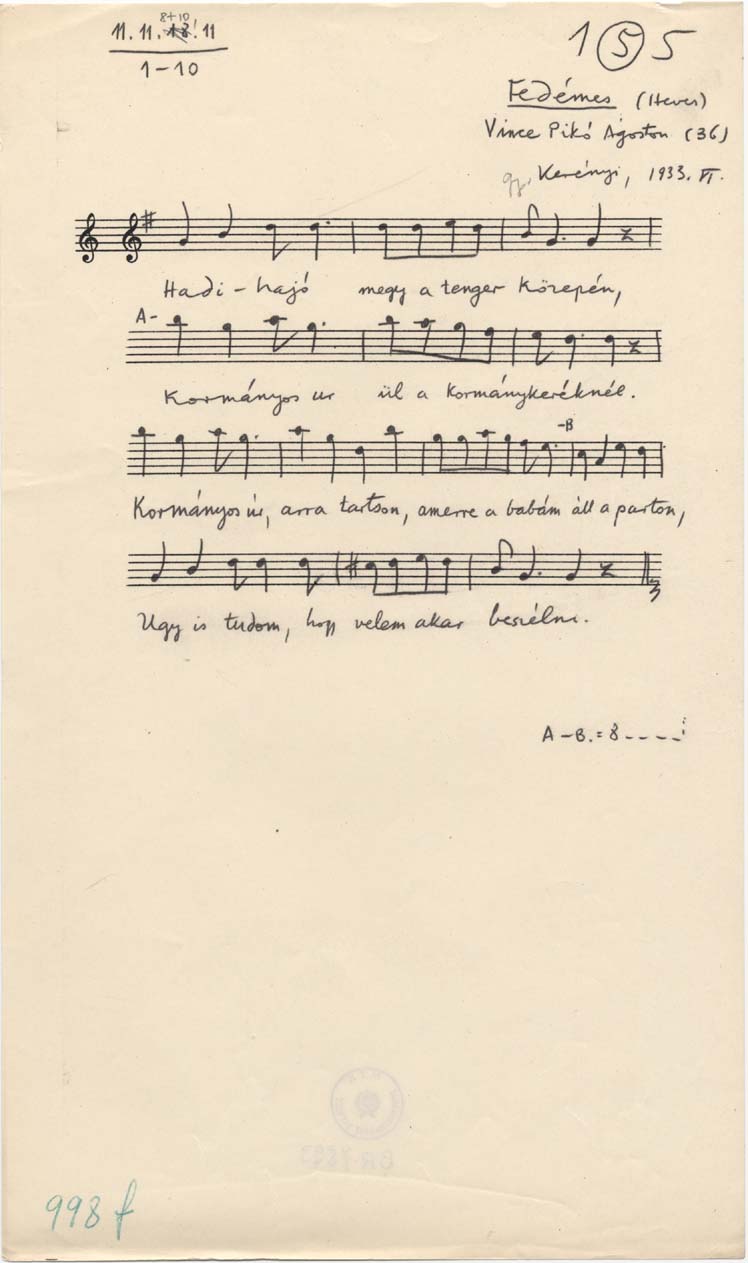 8+10
11. 11. 18! 11
1-10
1 5 5
Fedémes (Heves)
Vince Pikó Ágoston (36)
gy. Kerényi, 1933. VI.
Hadi-hajó megy a tenger közepén,
A-
Kormányos ur ül a kormánykeréknél.
-B
Kormányos úr, arra tartson, amerre a babám áll a parton,
Ugy is tudom, hogy velem akar beszélni.
A-B.=8----
998 f